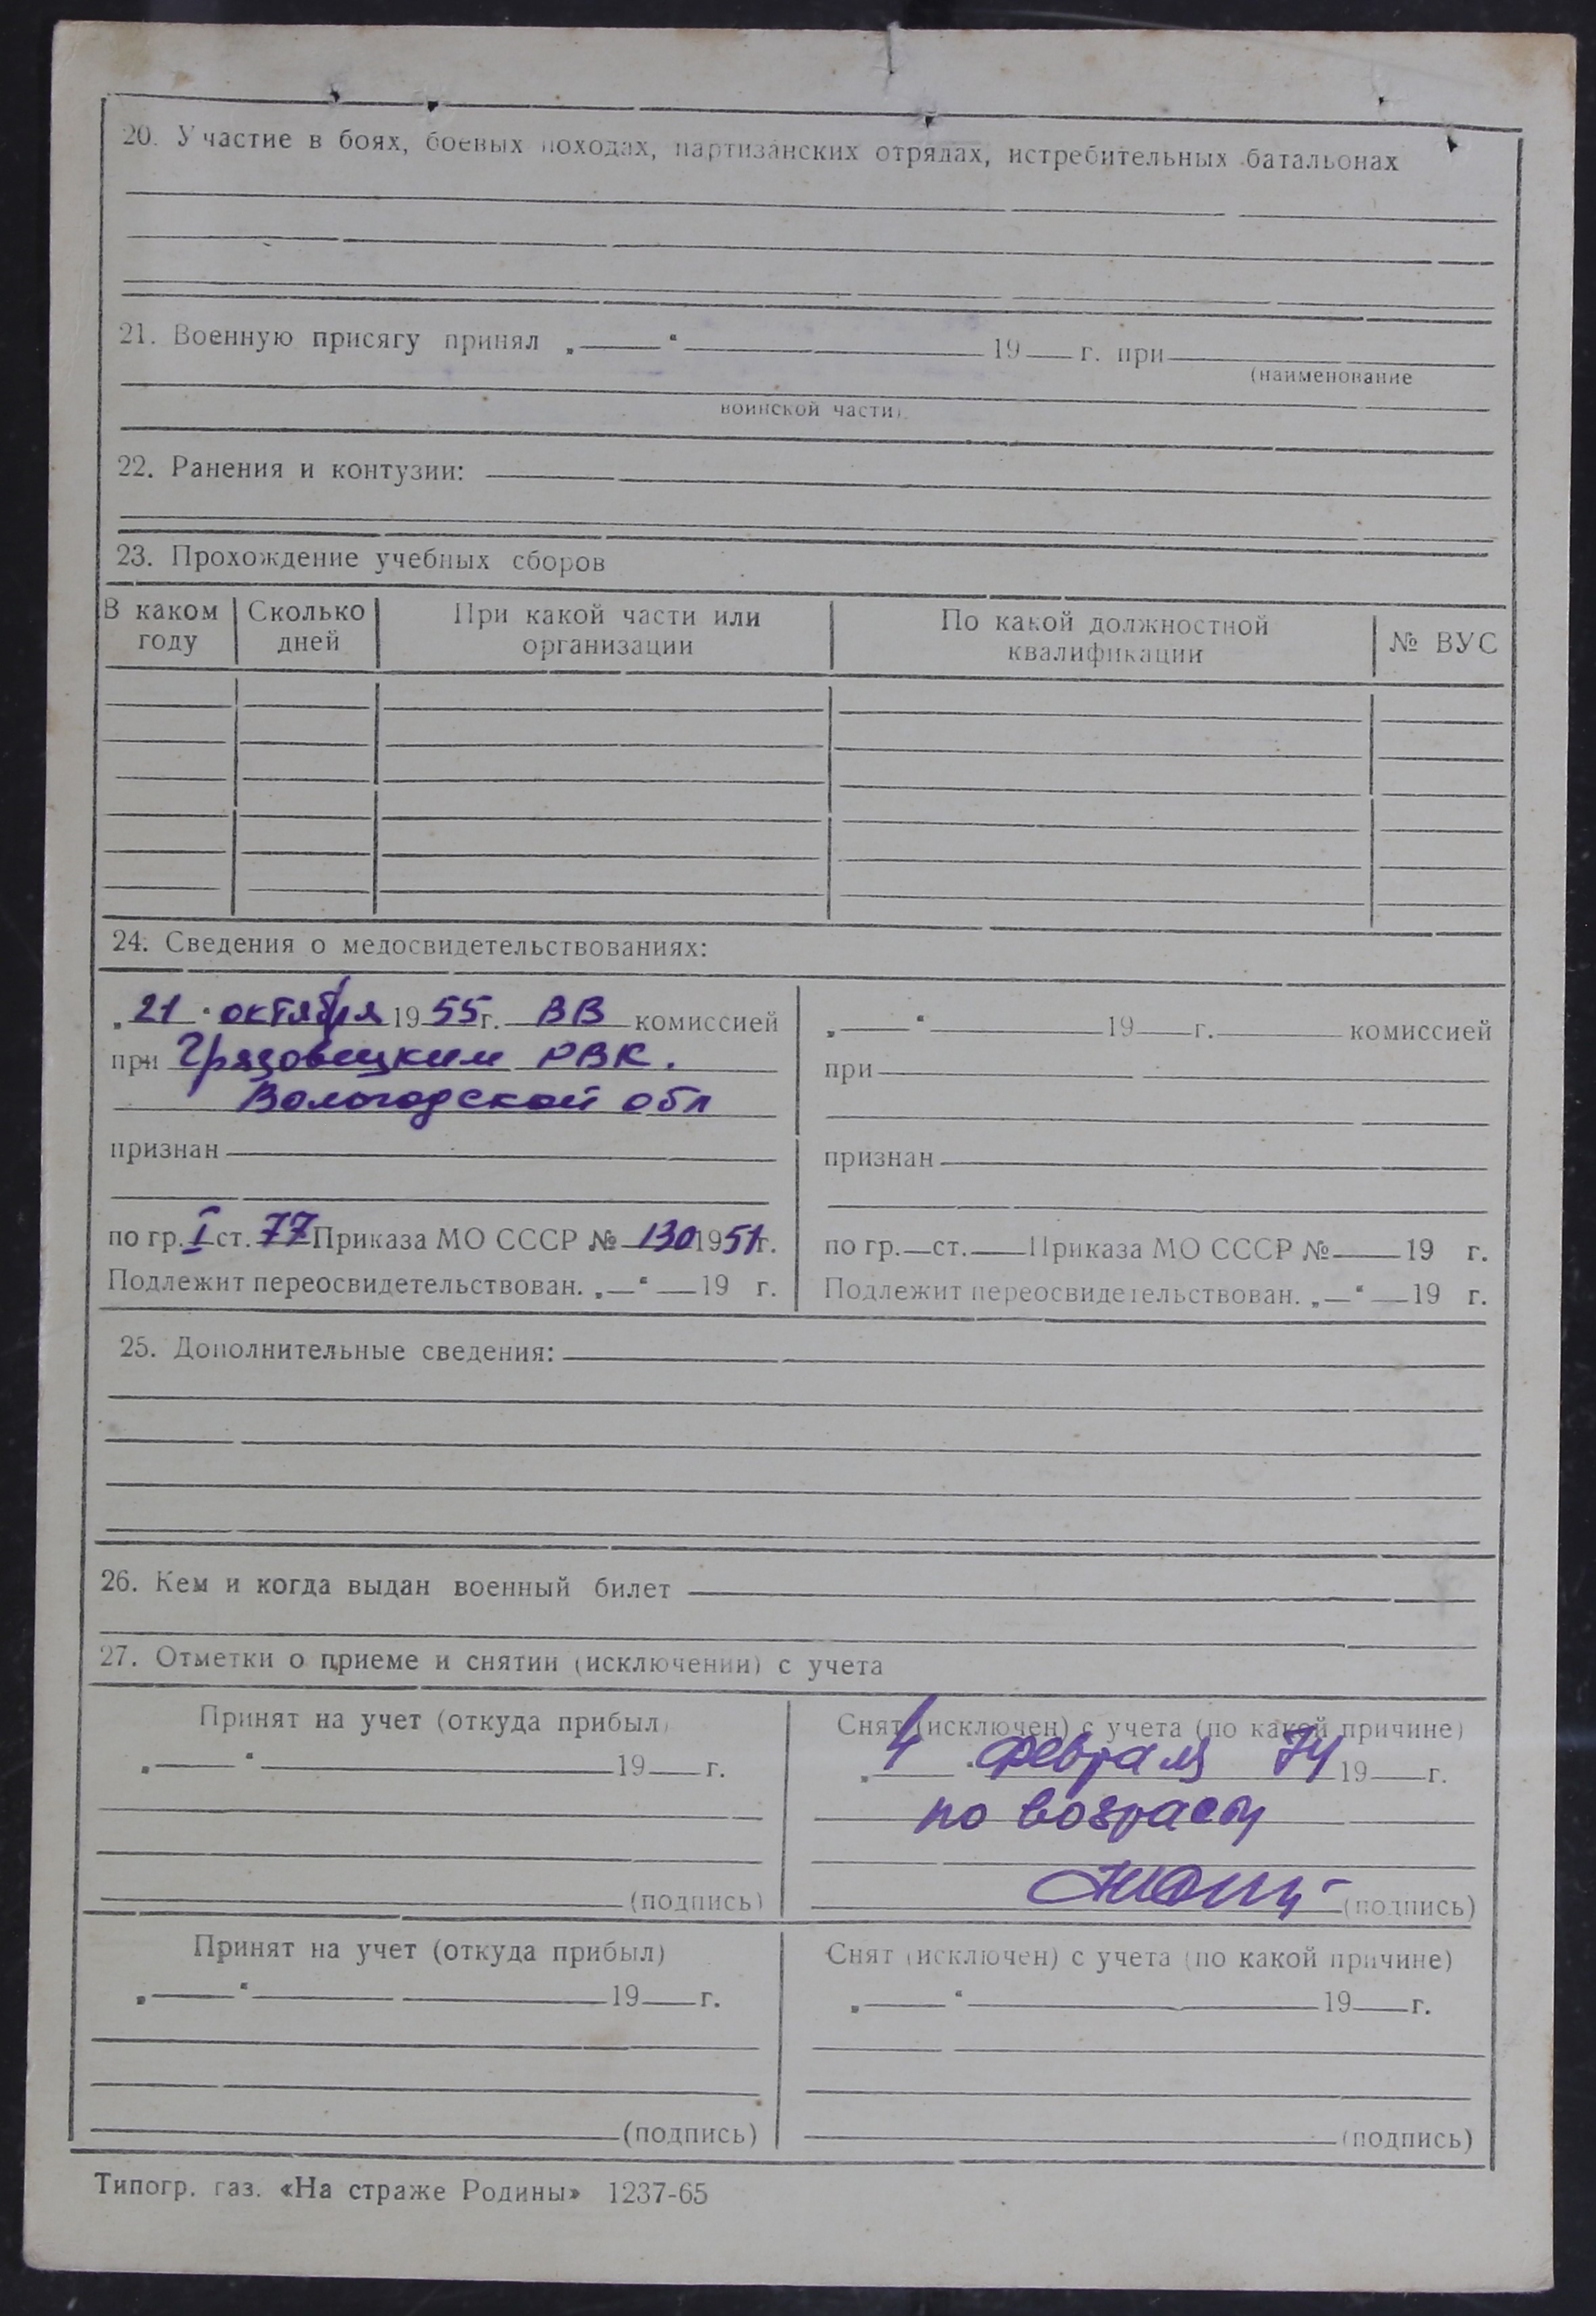 20. Участие в боях, боевых походах, партизанских отрядах, истребительных батальонах
21. Военную присягу принял „ “ 19 г. при
(наименование
воинской части).
22. Ранения и контузии:
23. Прохождение учебных сборов
В каком году Сколько дней При какой части или организации По какой должностной квалификации № ВУС
24. Сведения о медосвидетельствованиях:
„21“ октября 1955 г. ВВ комиссией
при Грязовецким РВК.
Вологодской обл
признан
по гр. I ст. 77 Приказа МО СССР № 130 1951 г.
Подлежит переосвидетельствован. „ “ 19 г.
„ “ 19 г. комиссией
при
признан
по гр. ст. Приказа МО СССР № 19 г.
Подлежит переосвидетельствован. „ “ 19 г.
25. Дополнительные сведения:
26. Кем и когда выдан военный билет
27. Отметки о приеме и снятии (исключении) с учета
Принят на учет (откуда прибыл)
„ “ 19 г.
(подпись)
Снят (исключен) с учета (по какой причине)
„4“ февраля 74 19 г.
по возрасту
(подпись)
Принят на учет (откуда прибыл)
„ “ 19 г.
(подпись)
Снят (исключен) с учета (по какой причине)
„ “ 19 г.
(подпись)
Типогр. газ. «На страже Родины» 1237-65